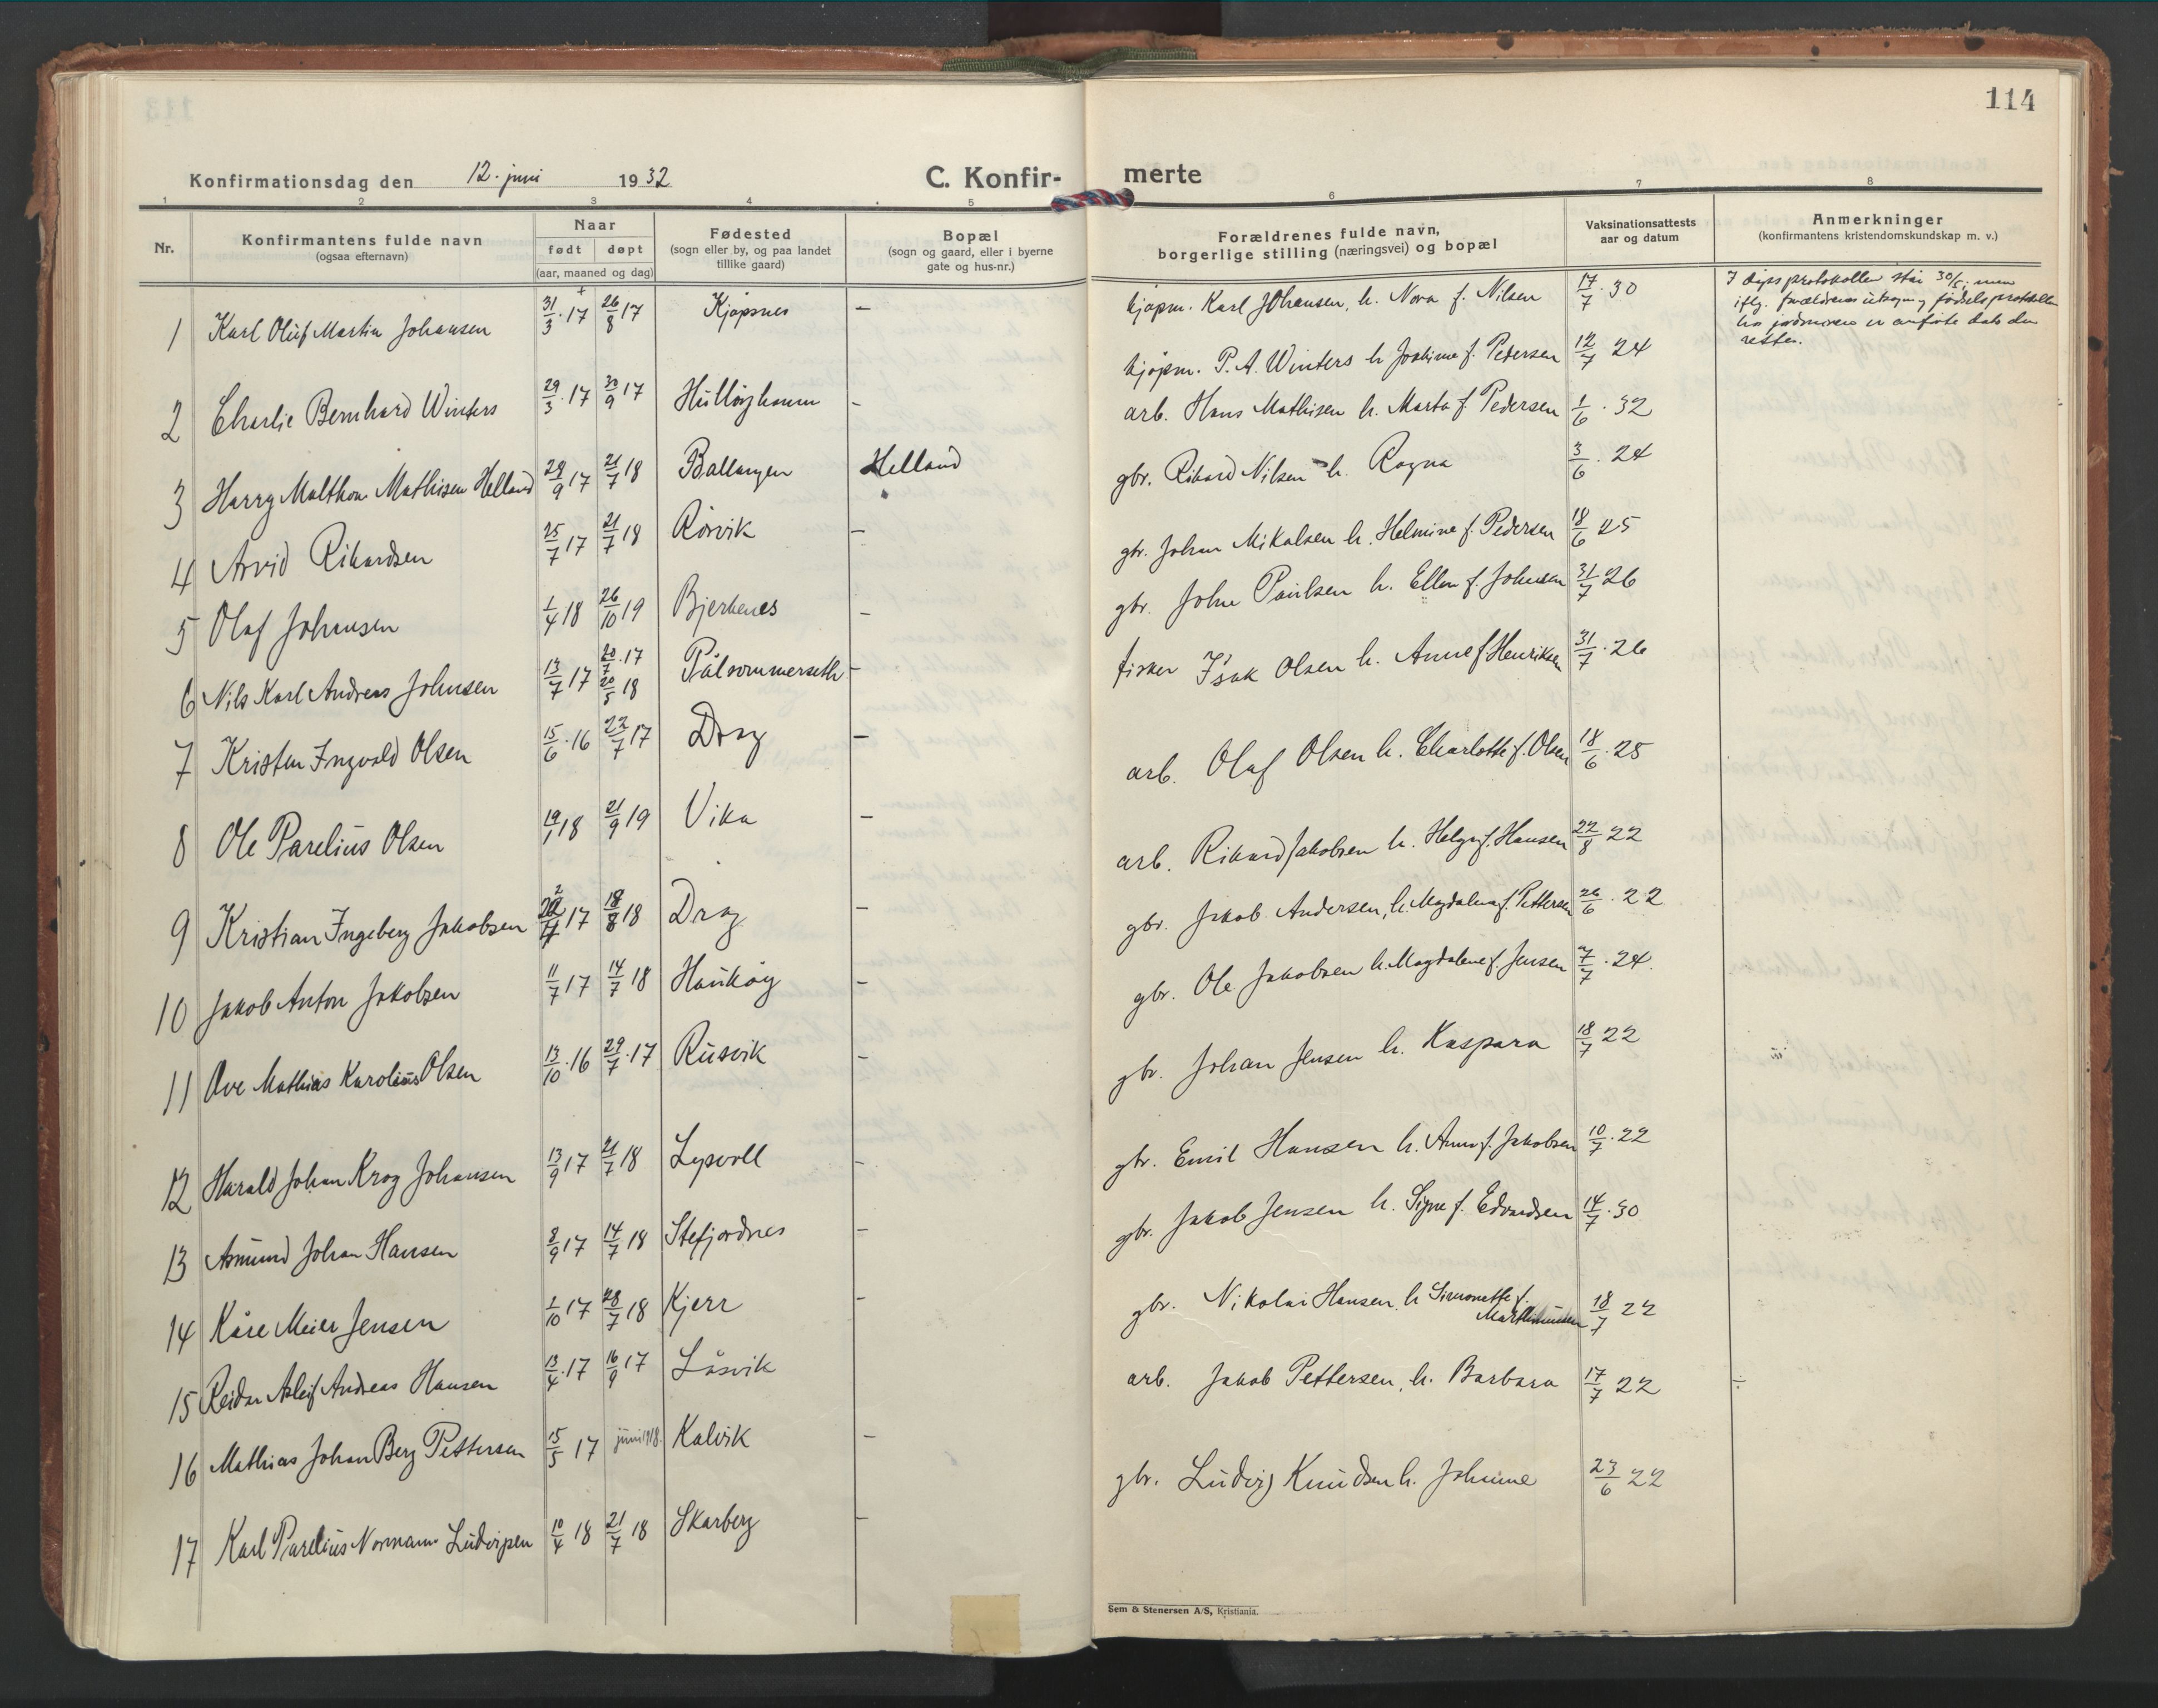 114
Konfirmationsdag den 12. juni 1932
C. Konfir-
merte
1 2 3 4 5 6 7 8
Nr.
Konfirmantens fulde navn
(ogsaa efternavn)
Naar
født døpt
(aar, maaned og dag)
Fødested
(sogn eller by, og paa landet
tillike gaard)
Bopæl
(sogn og gaard, eller i byerne
gate og hus-nr.)
Forældrenes fulde navn,
borgerlige stilling (næringsvei) og bopæl
Vaksinationsattests
aar og datum
Anmerkninger
(konfirmantens kristendomskundskap m. v.)
1 Karl Oluf Martin Johansen 31/3 · 17 + 26/8 17 Kjøpsnes — kjøpm. Karl Johansen, h. Nora f. Nilsen 17/7 · 30
I dåpsprotokollen står 30/5. men
iflg. forældrenes utsagn og fødselsprotokollen
hos jordmoren er anførte dato den
rette.
2 Charlie Bernhard Winters 29/3 · 17 30/9 17 Hulløyhamn - kjøpm. P. A. Winters h. Joakime f. Pedersen 12/7 24
3 Harry Malthon Mathisen Helland 28/9 17 21/7 18 Ballangen Helland arb. Hans Mathisen h. Marta f. Pedersen 1/6 · 32
4 Arvid Rikardsen 25/7 17 21/7 18 Rørvik — gbr. Rikard Nilsen h. Ragna 3/6 · 24
5 Olaf Johansen 1/4 18 26/10 19 Bjerkenes - gbr. Johan Mikalsen h. Helmine f. Pedersen 18/6 25
6 Nils Karl Andreas Johnsen 13/7 17 20/7 · 17 20/5 18 Pålsommerseth - gbr. John Paulsen h. Ellen f. Johnsen 31/7 26
7 Kristen Ingvald Olsen 15/6 · 16 22/7 17 Drag — fisker Isak Olsen h. Anne f. Henriksen 31/7 · 26
8 Ole Parelius Olsen 19/1 18 21/9 19 Vika - arb. Olaf Olsen h. Charlotte f. Olsen 18/6 · 25
9 Kristian Ingeberg Jakobsen 17 18/8 18 Drag - arb. Rikard Jakobsen h. Helga f. Hansen 22/8 22
10 Jakob Anton Jakobsen 11/7 17 14/7 18 Haukøy - gbr. Jakob Andersen, h. Magdalena f. Pettersen 26/6 · 22
11 Ove Mathias Karolius Olsen 13/10 · 16 29/7 · 17 Rusvik - gbr. Ole Jakobsen h. Magdalene f. Jensen 7/7 · 24.
12 Harald Johan Krog Johansen 13/9 17 21/7 18 Lysvoll - gbr. Johan Jensen h. Kaspara 18/7 22
13 Asmund Johan Hansen 8/9 17 14/7 18 Stefjordnes - gbr. Emil Hansen h. Anna f. Jakobsen 10/7 · 22
14 Kåre Meier Jensen 1/10 17 28/7 18 Kjerr - gbr. Jakob Jensen h. Signe f. Edvardsen 14/7 · 30
15 Reidar Asleif Andreas Hansen 13/4 · 17 16/9 17 Låsvik - gbr. Nikolai Hansen, h. Simonette f.
Martinussen 18/7 22
16 Mathias Johan Berg Pettersen 15/5 17 juni 1918. Kalvik - arb. Jakob Pettersen, h. Barbara 17/7 22
17 Karl Parelius Normann Ludvigsen 10/4 18 21/7 18 Skarberg - gbr. Ludvig Knudsen h. Johanne 23/6 22
Sem & Stenersen A/S, Kristiania.